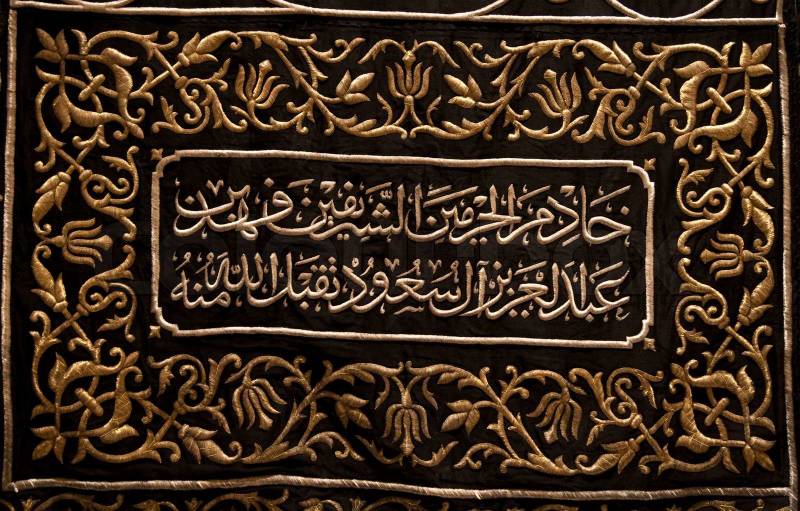 خَادِمَ الحَرمَينَ الشَّريفَين فهد بن
عَبد العَزيز آل سُعُود تقبَل اللّه مِنهُ